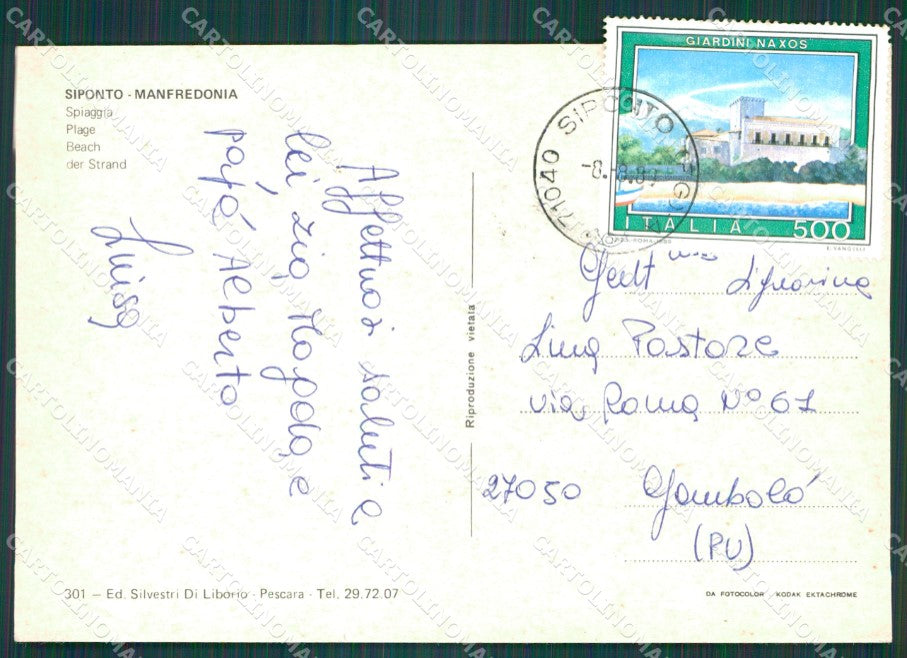 SIPONTO - MANFREDONIA
Spiaggia
Plage
Beach
der Strand
Affettuosi saluti e
lei, zia Magda, e
papà Alberto
Luisa
Riproduzione vietata
GIARDINI NAXOS
ITALIA 500
71040 SIPONTO (FG)
Gent.ma Signorina
Lina Pastore
via Roma N° 61
27050 Gambolò
(PV)
301 – Ed. Silvestri Di Liborio - Pescara - Tel. 29.72.07
DA FOTOCOLOR KODAK EKTACHROME
CARTOLINOMANIA